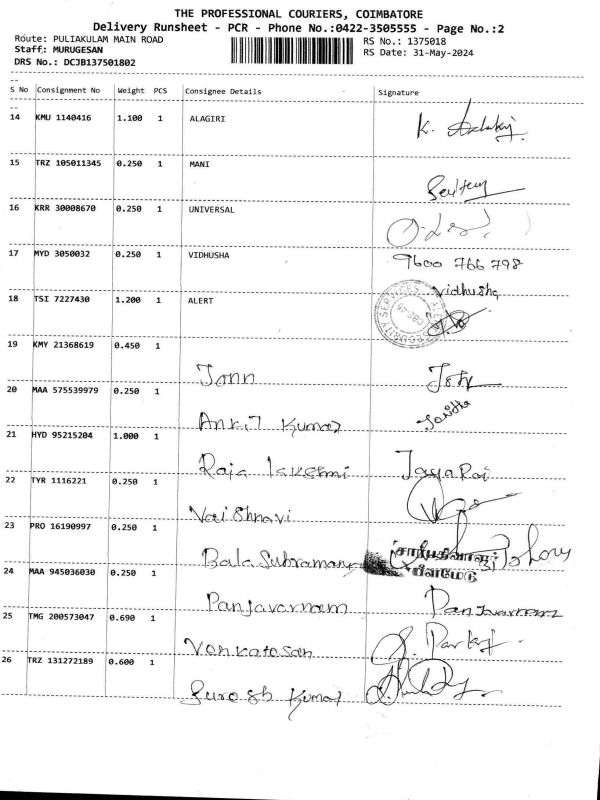 THE PROFESSIONAL COURIERS, COIMBATORE
Delivery Runsheet - PCR - Phone No.:0422-3505555 - Page No.:2
Route: PULIAKULAM MAIN ROAD
Staff: MURUGESAN
DRS No.: DCJB137501802
RS No.: 1375018
RS Date: 31-May-2024
S No Consignment No Weight PCS Consignee Details Signature
14 KMU 1140416 1.100 1 ALAGIRI K.
15 TRZ 105011345 0.250 1 MANI
16 KRR 30008670 0.250 1 UNIVERSAL
17 MYD 3050032 0.250 1 VIDHUSHA 9600 766 798
Vidhusha
18 TSI 7227430 1.200 1 ALERT
19 KMY 21368619 0.450 1
Jonn
20 MAA 575539979 0.250 1
Ankit Kumar
21 HYD 95215204 1.000 1
Raja lakshmi
22 TYR 1116221 0.250 1
Vaishnavi
23 PRO 16190997 0.250 1
Bala Subramany
சார்பதிவாளர்
பீளமேடு
24 MAA 945036030 0.250 1
Panjavarnam Panjavarnam
25 TMG 200573047 0.690 1
Venkatesan
26 TRZ 131272189 0.600 1
Suresh Kumar